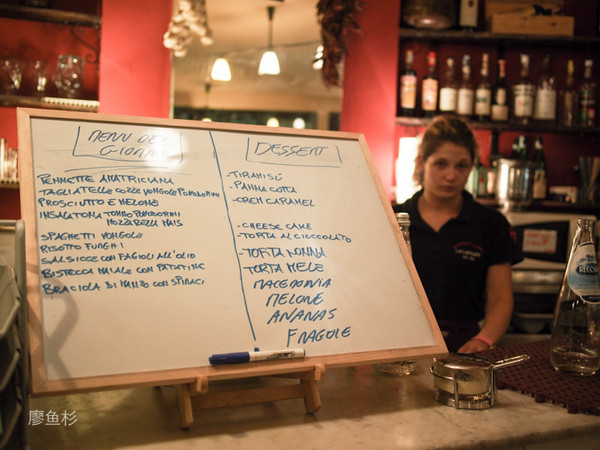 MENU DEL
GIORNO
PENNETTE AMATRICIANA
TAGLIATELLE COZZE VONGOLE POMODORINI
PROSCIUTTO E MELONE
INSALATONA TONNO POMODORINI
MOZZARELLA MAIS
SPAGHETTI VONGOLE
RISOTTO FUNGHI
SALSICCE CON FAGIOLI ALL'OLIO
BISTECCA MAIALE CON PATATINE
BRACIOLA DI MANZO CON SPINACI
DESSERT
-TIRAMISÙ
-PANNA COTTA
-CREM CARAMEL
-CHEESE CAKE
-TORTA AL CIOCCOLATO
-TORTA NONNA
TORTA MELE
MACEDONIA
MELONE
ANANAS
FRAGOLE
廖鱼杉